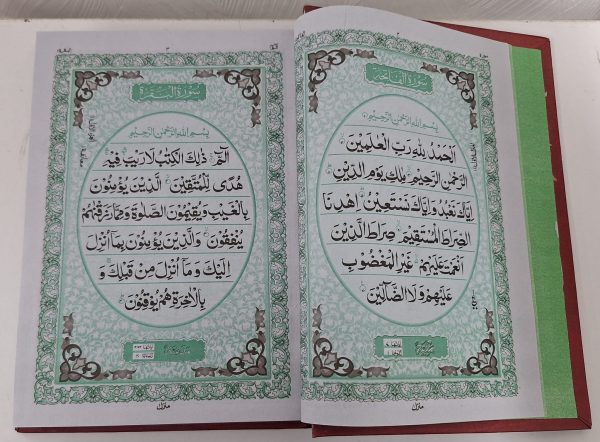 سورة الفاتحة
بِسْمِ اللهِ الرَّحْمٰنِ الرَّحِيْمِ
اَلْحَمْدُ لِلّٰهِ رَبِّ الْعٰلَمِيْنَ
الرَّحْمٰنِ الرَّحِيْمِ مٰلِكِ يَوْمِ الدِّيْنِ
اِيَّاكَ نَعْبُدُ وَاِيَّاكَ نَسْتَعِيْنُ اِهْدِنَا
الصِّرَاطَ الْمُسْتَقِيْمَ صِرَاطَ الَّذِيْنَ
اَنْعَمْتَ عَلَيْهِمْ غَيْرِ الْمَغْضُوْبِ
عَلَيْهِمْ وَلَا الضَّآلِّيْنَ
منزل
سورة البقرة
بِسْمِ اللهِ الرَّحْمٰنِ الرَّحِيْمِ
الٓمّٓ ذٰلِكَ الْكِتٰبُ لَا رَيْبَ فِيْهِ
هُدًى لِّلْمُتَّقِيْنَ الَّذِيْنَ يُؤْمِنُوْنَ
بِالْغَيْبِ وَيُقِيْمُوْنَ الصَّلٰوةَ وَمِمَّا رَزَقْنٰهُمْ
يُنْفِقُوْنَ وَالَّذِيْنَ يُؤْمِنُوْنَ بِمَآ اُنْزِلَ
اِلَيْكَ وَمَآ اُنْزِلَ مِنْ قَبْلِكَ وَ
بِالْاٰخِرَةِ هُمْ يُوْقِنُوْنَ
منزل